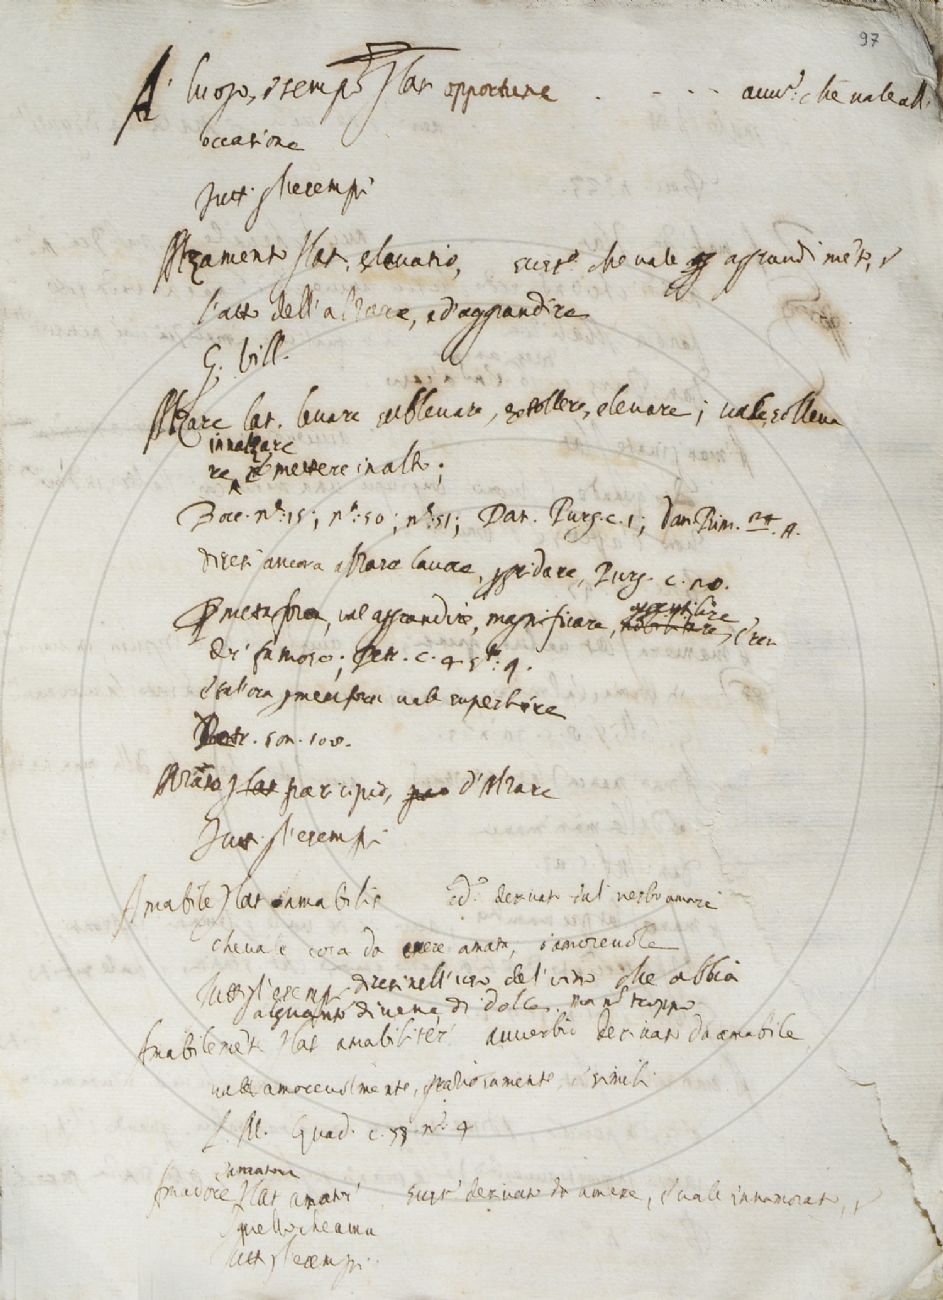 97
A' luogo, e temp. lat. opportune . - - - auu.° che uale all'
occasione
Tutt. gl'esempi
Alzamento lat. eleuatio, sust.° che uale aggrandimẽto, e
l'atto dell'alzare, e d'aggrandire
G. Vill.
Alzare lat. leuare subleuare, extollere, eleuare; uale solleua
innalzare
re, e mettere in alto;
Bocc. n.° 15; n.° 50; n.° 51; Dan. Purg. c. 1; Dan. Rim.
dicesi ancora alzare la uoce, gridare, Purg. c.
metafora, ual aggrandire, magnificare, nobilitare, e ren
der famoso; Petr. c. 4 4.
e talora p metafora uale superbire
Petr. son. 100.
Alzato lat participio, d'Alzare
Tutt. gl'esempi
Amabile lat amabilis ad.° deriuat dal uerbo amare
che uale cosa da essere amata, e amoreuole
Tutt gl'esemp. dicesi nell'uso del uino che abbia
alquanto di uena di dolce, ma nõ troppo
Amabilemẽte lat amabiliter auuerbio deriuat da amabile
uale amoreuolmente, graziosamente e simili
L. M. Quad. c. n.° 4
Amadore lat amator sust.° deriuat da amare, e uale innamorato, e
quello che ama
Tutt gl'esempi